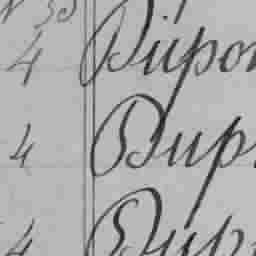 4 Dupon
4 Dup
4 Dup